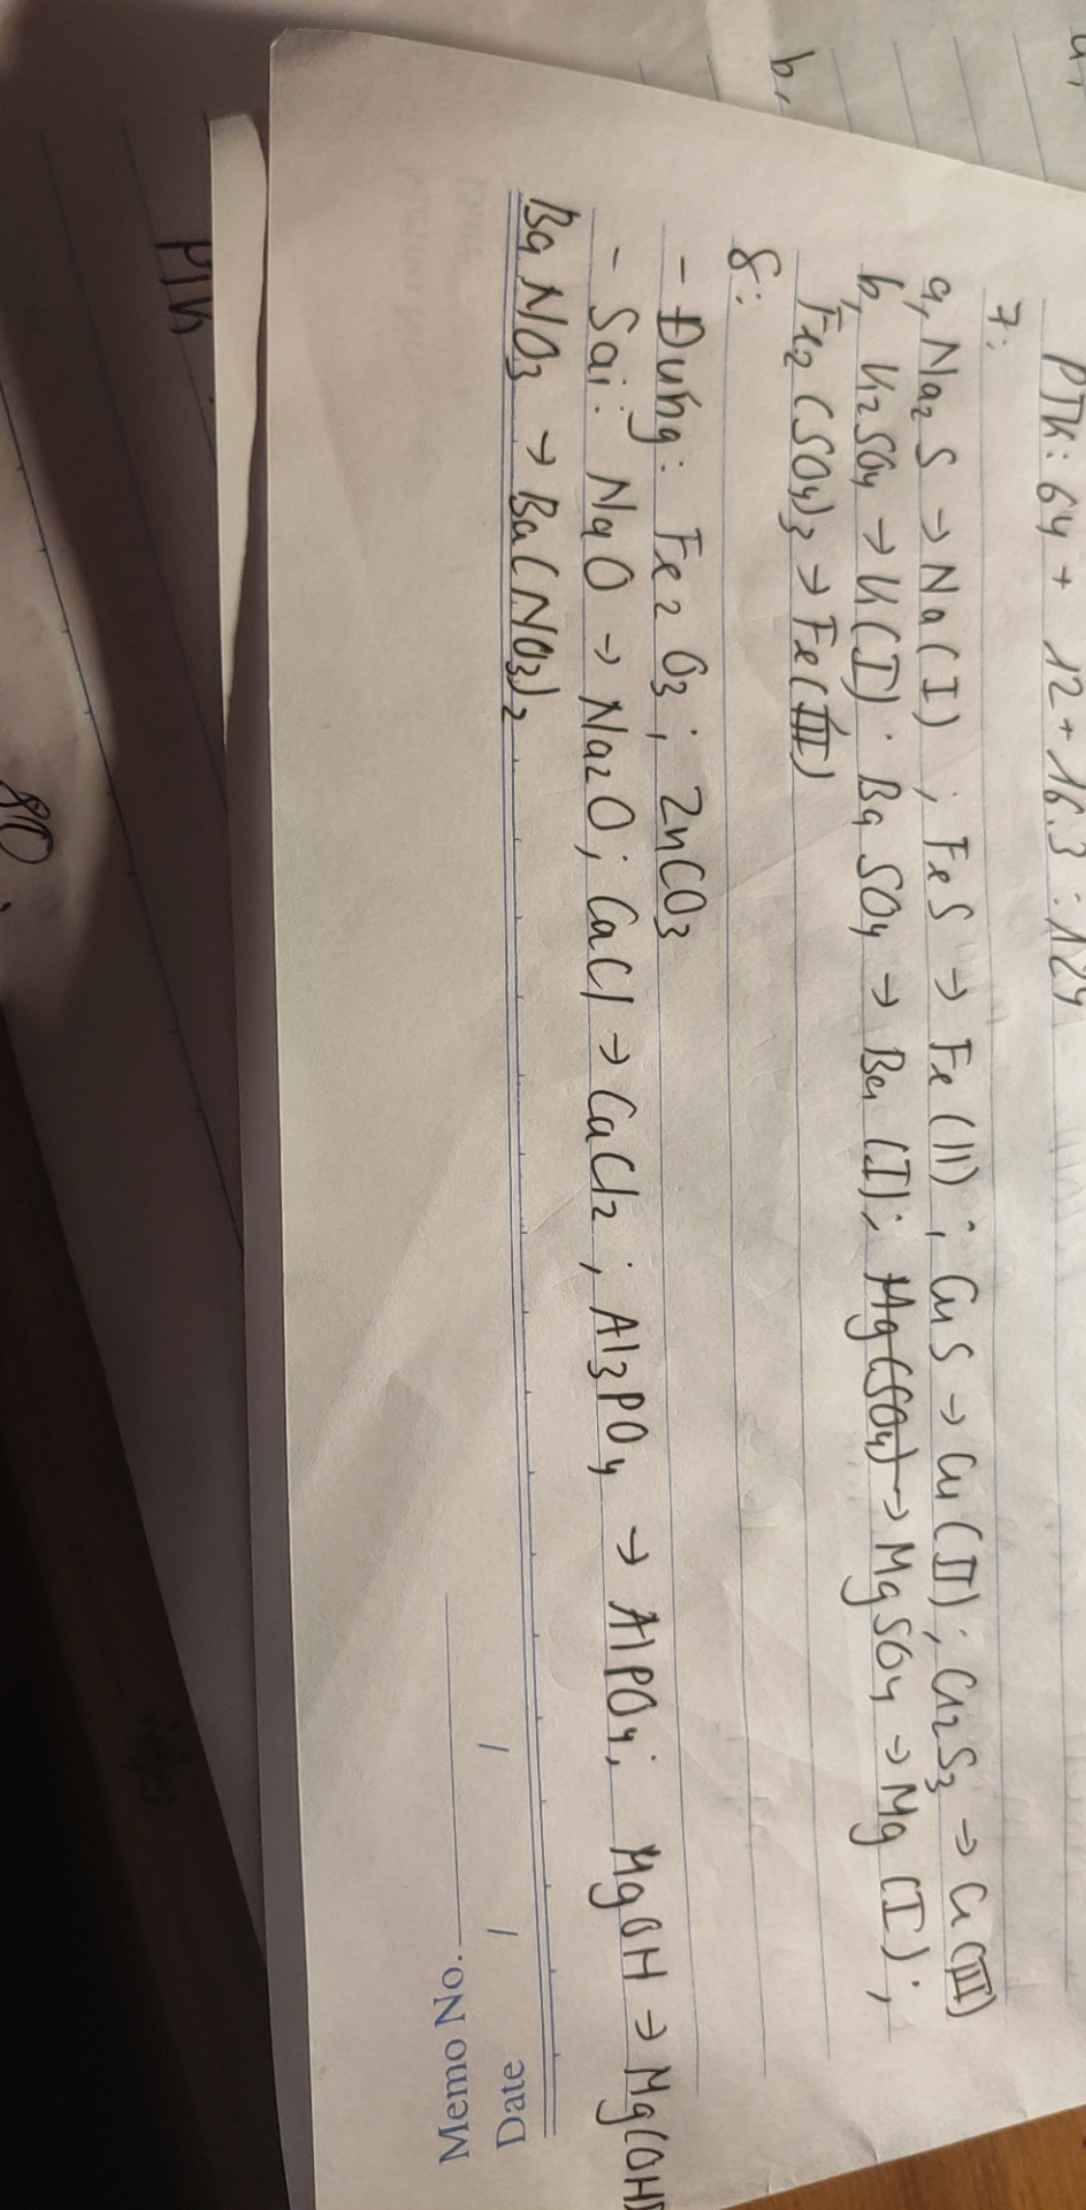 b,
PTK: 64 + 12 + 16.3 : 124
7:
a, Na2S → Na(I) ; FeS → Fe (II) ; CuS → Cu (II) ; Cr2S3 → Cr (III)
b, K2SO4 → K(I) ; BaSO4 → Ba (I); Mg(SO4) → MgSO4 → Mg (I) ;
Fe2(SO4)3 → Fe(III)
8:
- Đúng : Fe2O3 ; ZnCO3
- Sai : NaO → Na2O ; CaCl → CaCl2 ; Al3PO4 → AlPO4; MgOH → Mg(OH)
BaNO3 → Ba(NO3)2
Memo No.
Date / /
PTK
80